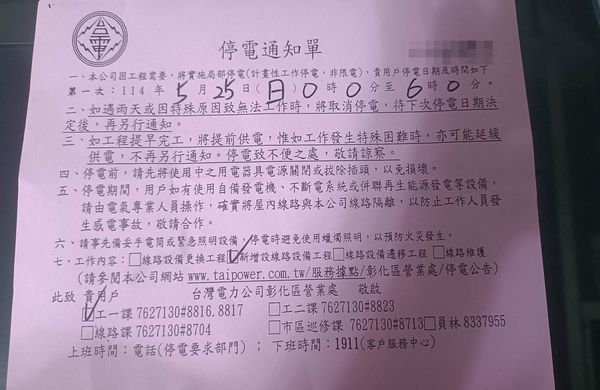 台電
停電通知單
一、本公司因工程需要，將實施局部停電(計畫性工作停電，非限電)，貴用戶停電日期及時間如下
第一次：114年5月25日(日)0時0分至6時0分。
二、如遇雨天或因特殊原因致無法工作時，將取消停電，待下次停電日期決
定後，再另行通知。
三、如工程提早完工，將提前供電，惟如工作發生特殊困難時，亦可能延緩
供電，不再另行通知。停電致不便之處，敬請諒察。
四、停電前，請先將使用中之用電器具電源關閉或拔除插頭，以免損壞。
五、停電期間，用戶如有使用自備發電機、不斷電系統或併聯再生能源發電等設備，
請由電氣專業人員操作，確實將屋內線路與本公司線路隔離，以防止工作人員發
生感電事故，敬請合作。
六、請事先備妥手電筒或緊急照明設備，停電時避免使用蠟燭照明，以預防火災發生。
七、工作內容：□線路設備更換工程☑新增設線路設備工程□線路設備遷移工程□線路維護
(請參閱本公司網站 www.taipower.com.tw/服務據點/彰化區營業處/停電公告)
此致 貴用戶 台灣電力公司彰化區營業處 敬啟
☑工一課 7627130#8816.8817 □工二課 7627130#8823
□線路課 7627130#8704 □市區巡修課 7627130#8713□員林 8337955
上班時間：電話(停電要求部門)；下班時間：1911(客戶服務中心)